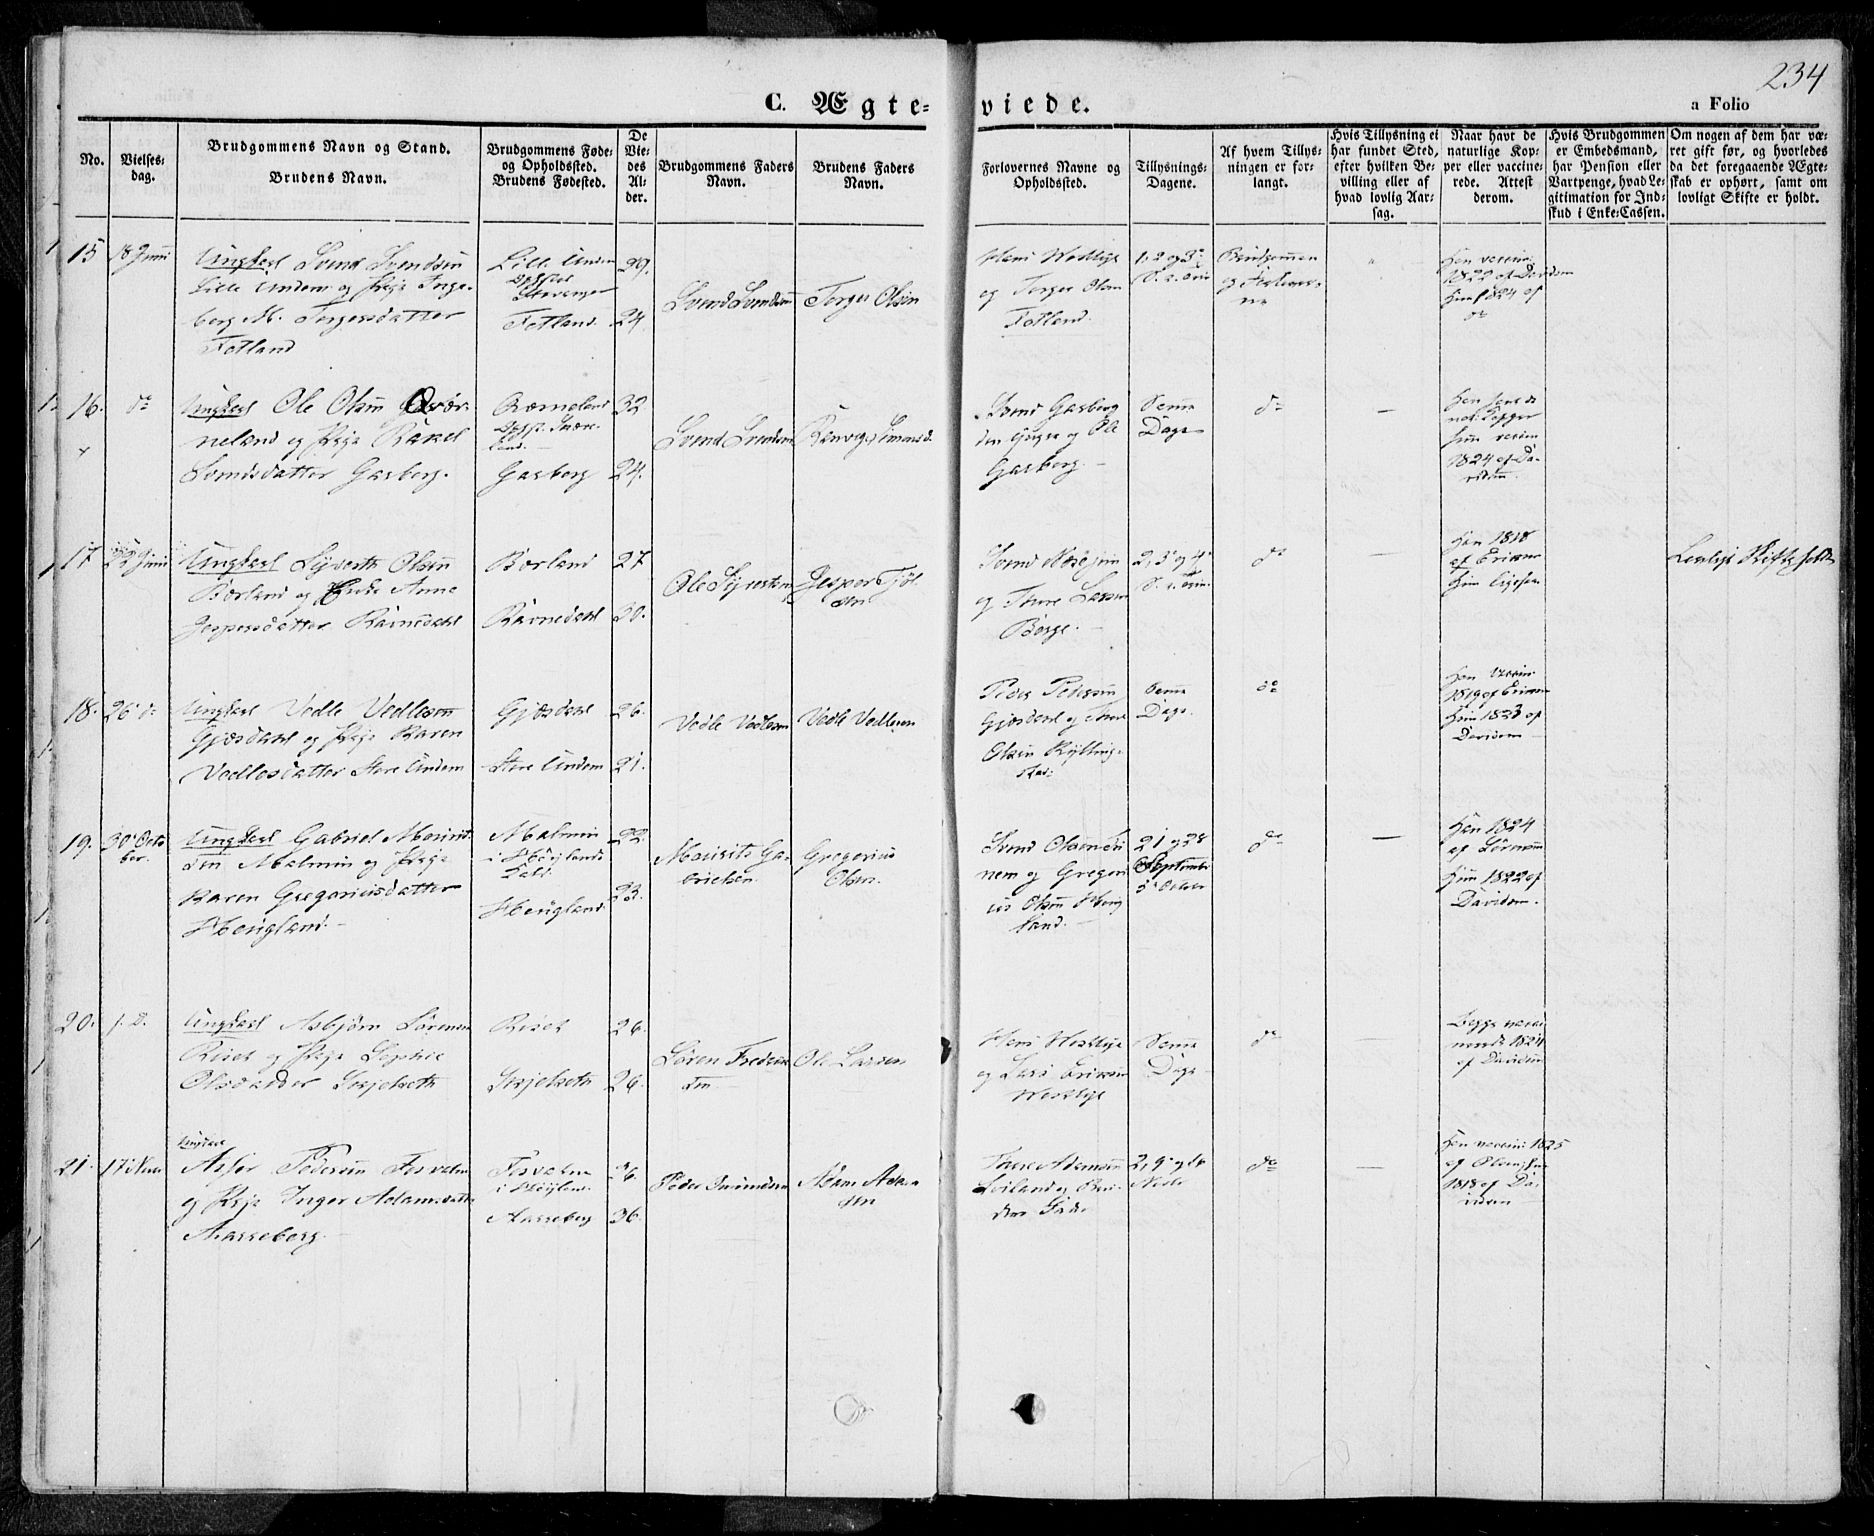 234
C. Ægte- viede.
a Folio
No.
Vielses-
dag.
Brudgommens Navn og Stand.
Brudens Navn.
Brudgommens Føde-
og Opholdssted.
Brudens Fødested.
De
Vie-
des
Al-
der.
Brudgommens Faders
Navn.
Brudens Faders
Navn.
Forlovernes Navne og
Opholdssted.
Tillysnings-
Dagene.
Af hvem Tillys-
ningen er for-
langt.
Hvis Tillysning ei
har fundet Sted,
efter hvilken Be-
villing eller af
hvad lovlig Aar-
sag.
Naar havt de
naturlige Kop-
per eller vaccine-
rede. Attest
derom.
Hvis Brudgommen
er Embedsmand,
har Pension eller
Vartpenge, hvad Le-
gitimation for Ind-
skud i Enke-Cassen.
Om nogen af dem har væ-
ret gift før, og hvorledes
da det foregaaende Ægte-
skab er ophørt, samt om
lovligt Skifte er holdt.
15
18 Juni
Ungkarl Svend Svendsen
Lille Undem og Pige Inge-
borg M. Torgersdatter
Fotland
Lille Undem
Stavanger
Fotland.
29.
24
Svend Svendsen
Torger Olsen
og Torger Olsen
Fotland.
1, 2 og 3
Brudgommen
og Forlover-
ne
1822 af Davidsen
1824 af
do
16.
do
Ungkarl Ole Olsen
neland og Pige Rakel
Svendsdatter Gasberg.
Gasberg
32
24.
Svend Svendsen
Svend Gasberg
den yngre og Ole
Gasberg.
Samme
Dage
do
—
1824 af Da-
vidsen.
17
22 Juni
Ungkarl Sÿvert Olsen
Børland og Enke Anne
Jespersdatter Ravnedahl
Børland
Ravnedahl
27
30.
Ole Syvertsen
Jesper
sen
og Tore Larsen
Berge.
2, 3 og 4
do
—
Han 1818
af Eriksen
Hun ligesaa
Lovligt Skifte holdt
18.
26 do
Ungkarl Vedle Vedlesen
Gjæsdahl og Pige Karen
Vedlesdatter Store Undem
Gjæsdahl
Store Undem
26.
21.
Vedle Vedlesen
Vedle Vedlesen
Peder Pedersen
Gjæsdahl og Tore
Olsen Kylling-
stad.
Samme
Dage
do
1819 af Eriksen
Hun 1823 af
Davidsen
19.
30 Octo
ber.
Ungkarl Gabriel Mourits-
sen Malmin og Pige
Karen Gregoriusdatter
Høigland.
Malmin
i Høilands
Gield
Høigland
22.
23.
Mourits Ga-
brielsen
Gregorius
Olsen.
Svend Olsen
og Gregori
us Olsen Høig
land.
21 og 28
September
5 October
do
—
Han 1824
af Sørensen
Hun 1822 af
Davidsen.
20.
s. D.
Ungkarl Asbjørn Sørensen
Riset og Pige Sophie
Olsdatter Skjelseth
Riset
Skjelseth
26.
26.
Søren Fredrik
sen
Ole Larsen
og Lars Eriksen
Westlye
Samme
Dage
do
—
Begge vacci
nerede 1824
af Davidsen
21.
17
Ungkarl
Asser Pedersen Fosvatne
og Pige Inger Adamsdatter
Aasseberg.
Fosvatne
i Høiland
Aasseberg
36.
Peder
Adam Adam
sen
Tore Adamsen
2, 9 og 16
do
—
Han vaccin: 1825
af Olsen, Hun
1818 af Da-
vidsen